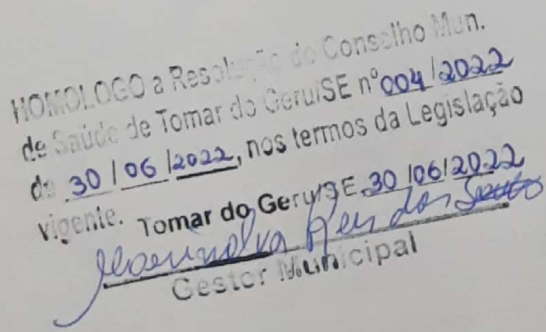 HOMOLOGO a Resolução do Conselho Mun.
de Saúde de Tomar do Geru/SE nº 004/2022
de 30/06/2022, nos termos da Legislação
vigente. Tomar do Geru/SE 30/06/2022
dos Santos
Gestor Municipal